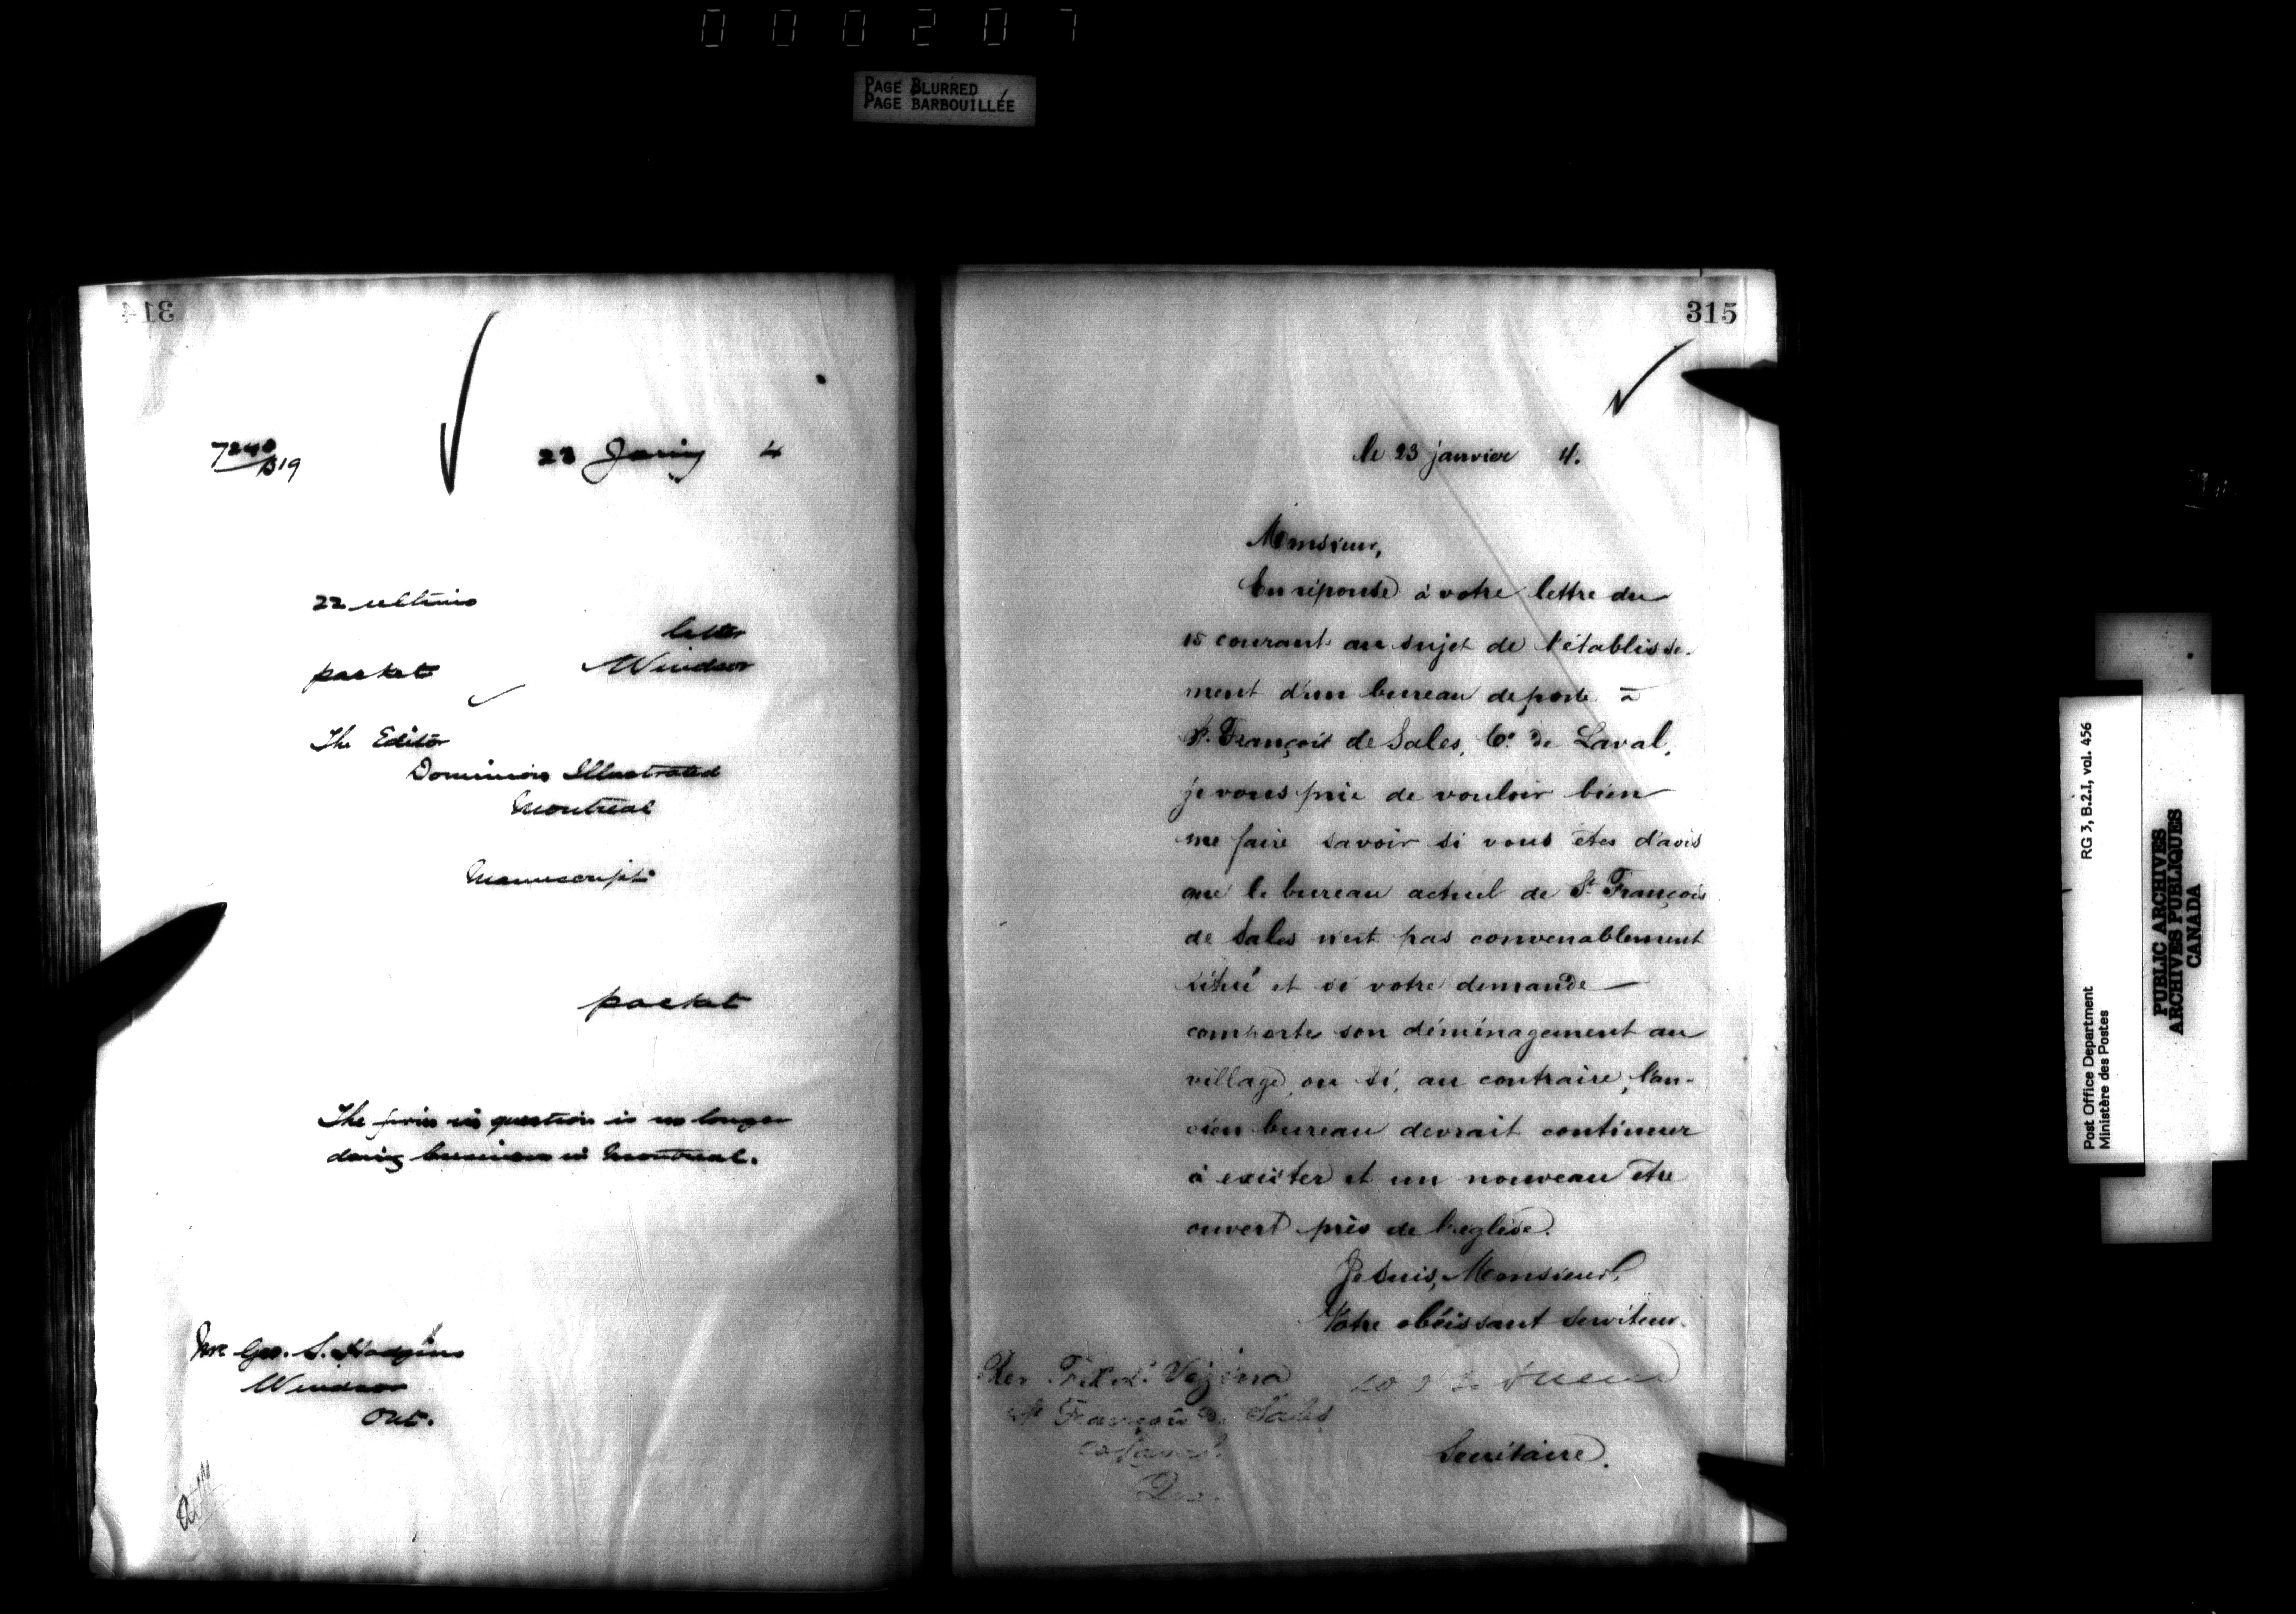 000207
PAGE BLURRED
PAGE BARBOUILLÉE
314
7240/B19
23 Jany 4
22 ultimo
letter
packet Windsor
The Editor
Dominion Illustrated
Montreal
Manuscript
packet
The firm in question is no longer
doing business in Montreal.
Mr Geo. S. Hodgins
Windsor
Ont.
315
le 23 janvier 4.
Monsieur,
En réponse à votre lettre du
15 courant au sujet de l'établisse-
ment d'un bureau de poste à
St. François de Sales, Co. de Laval,
je vous prie de vouloir bien
me faire savoir si vous êtes d'avis
que le bureau actuel de St. François
de Sales n'est pas convenablement
situé et si votre demande
comporte son déménagement au
village, ou si, au contraire, l'an-
cien bureau devrait continuer
à exister et un nouveau être
ouvert près de l'église.
Je suis, Monsieur,
Votre obéissant serviteur.
Rev. Vezina
St François de Sales
Secrétaire.
Post Office Department
Ministère des Postes
RG 3, B.2.I, vol. 456
PUBLIC ARCHIVES
ARCHIVES PUBLIQUES
CANADA